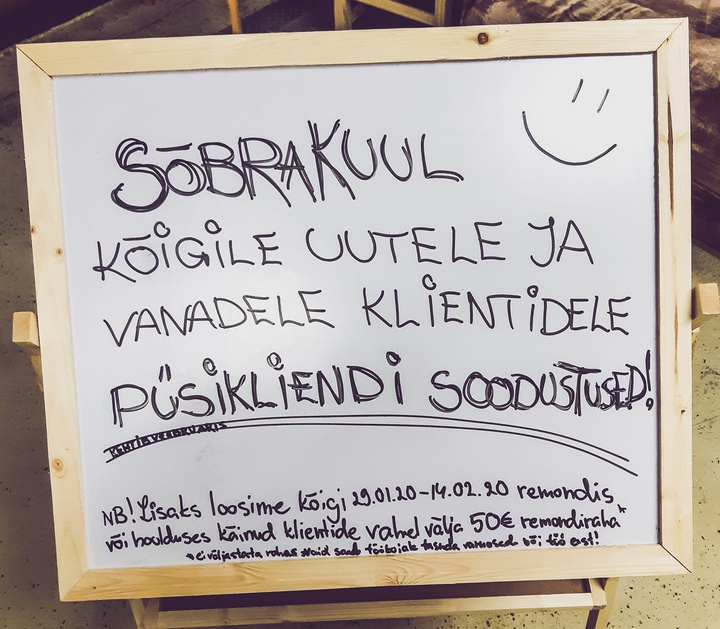 SÕBRAKUUL
KÕIGILE UUTELE JA
VANADELE KLIENTIDELE
PÜSIKLIENDI SOODUSTUSED!
KEHTIB VEEBRUARIS
NB! Lisaks loosime kõigi 29.01.20-14.02.20 remondis
või hoolduses käinud klientide vahel välja 50€ remondiraha*
*ei väljastata rahas vaid saab töökojale tasuda varuosade või töö eest!